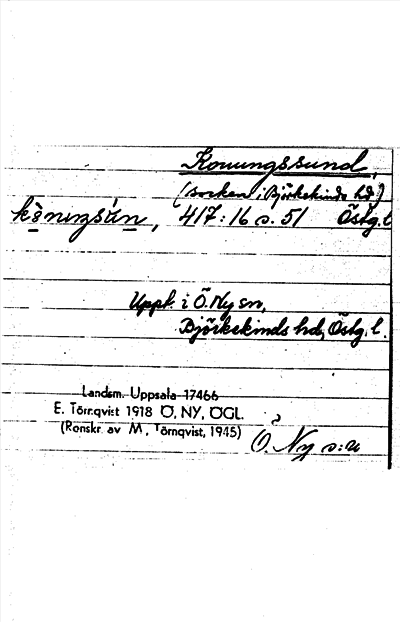 Konungssund,
(socken i Björkekinds hd)
417:16 s. 51 Östg. l
Uppt. i Ö. Ny sn,
Björkekinds hd, Östg. l.
Landsm. Uppsala 17466
E. Törnqvist 1918 Ö. NY, ÖGL.
(Renskr. av M. Törnqvist, 1945)
Ö. Ny s:n